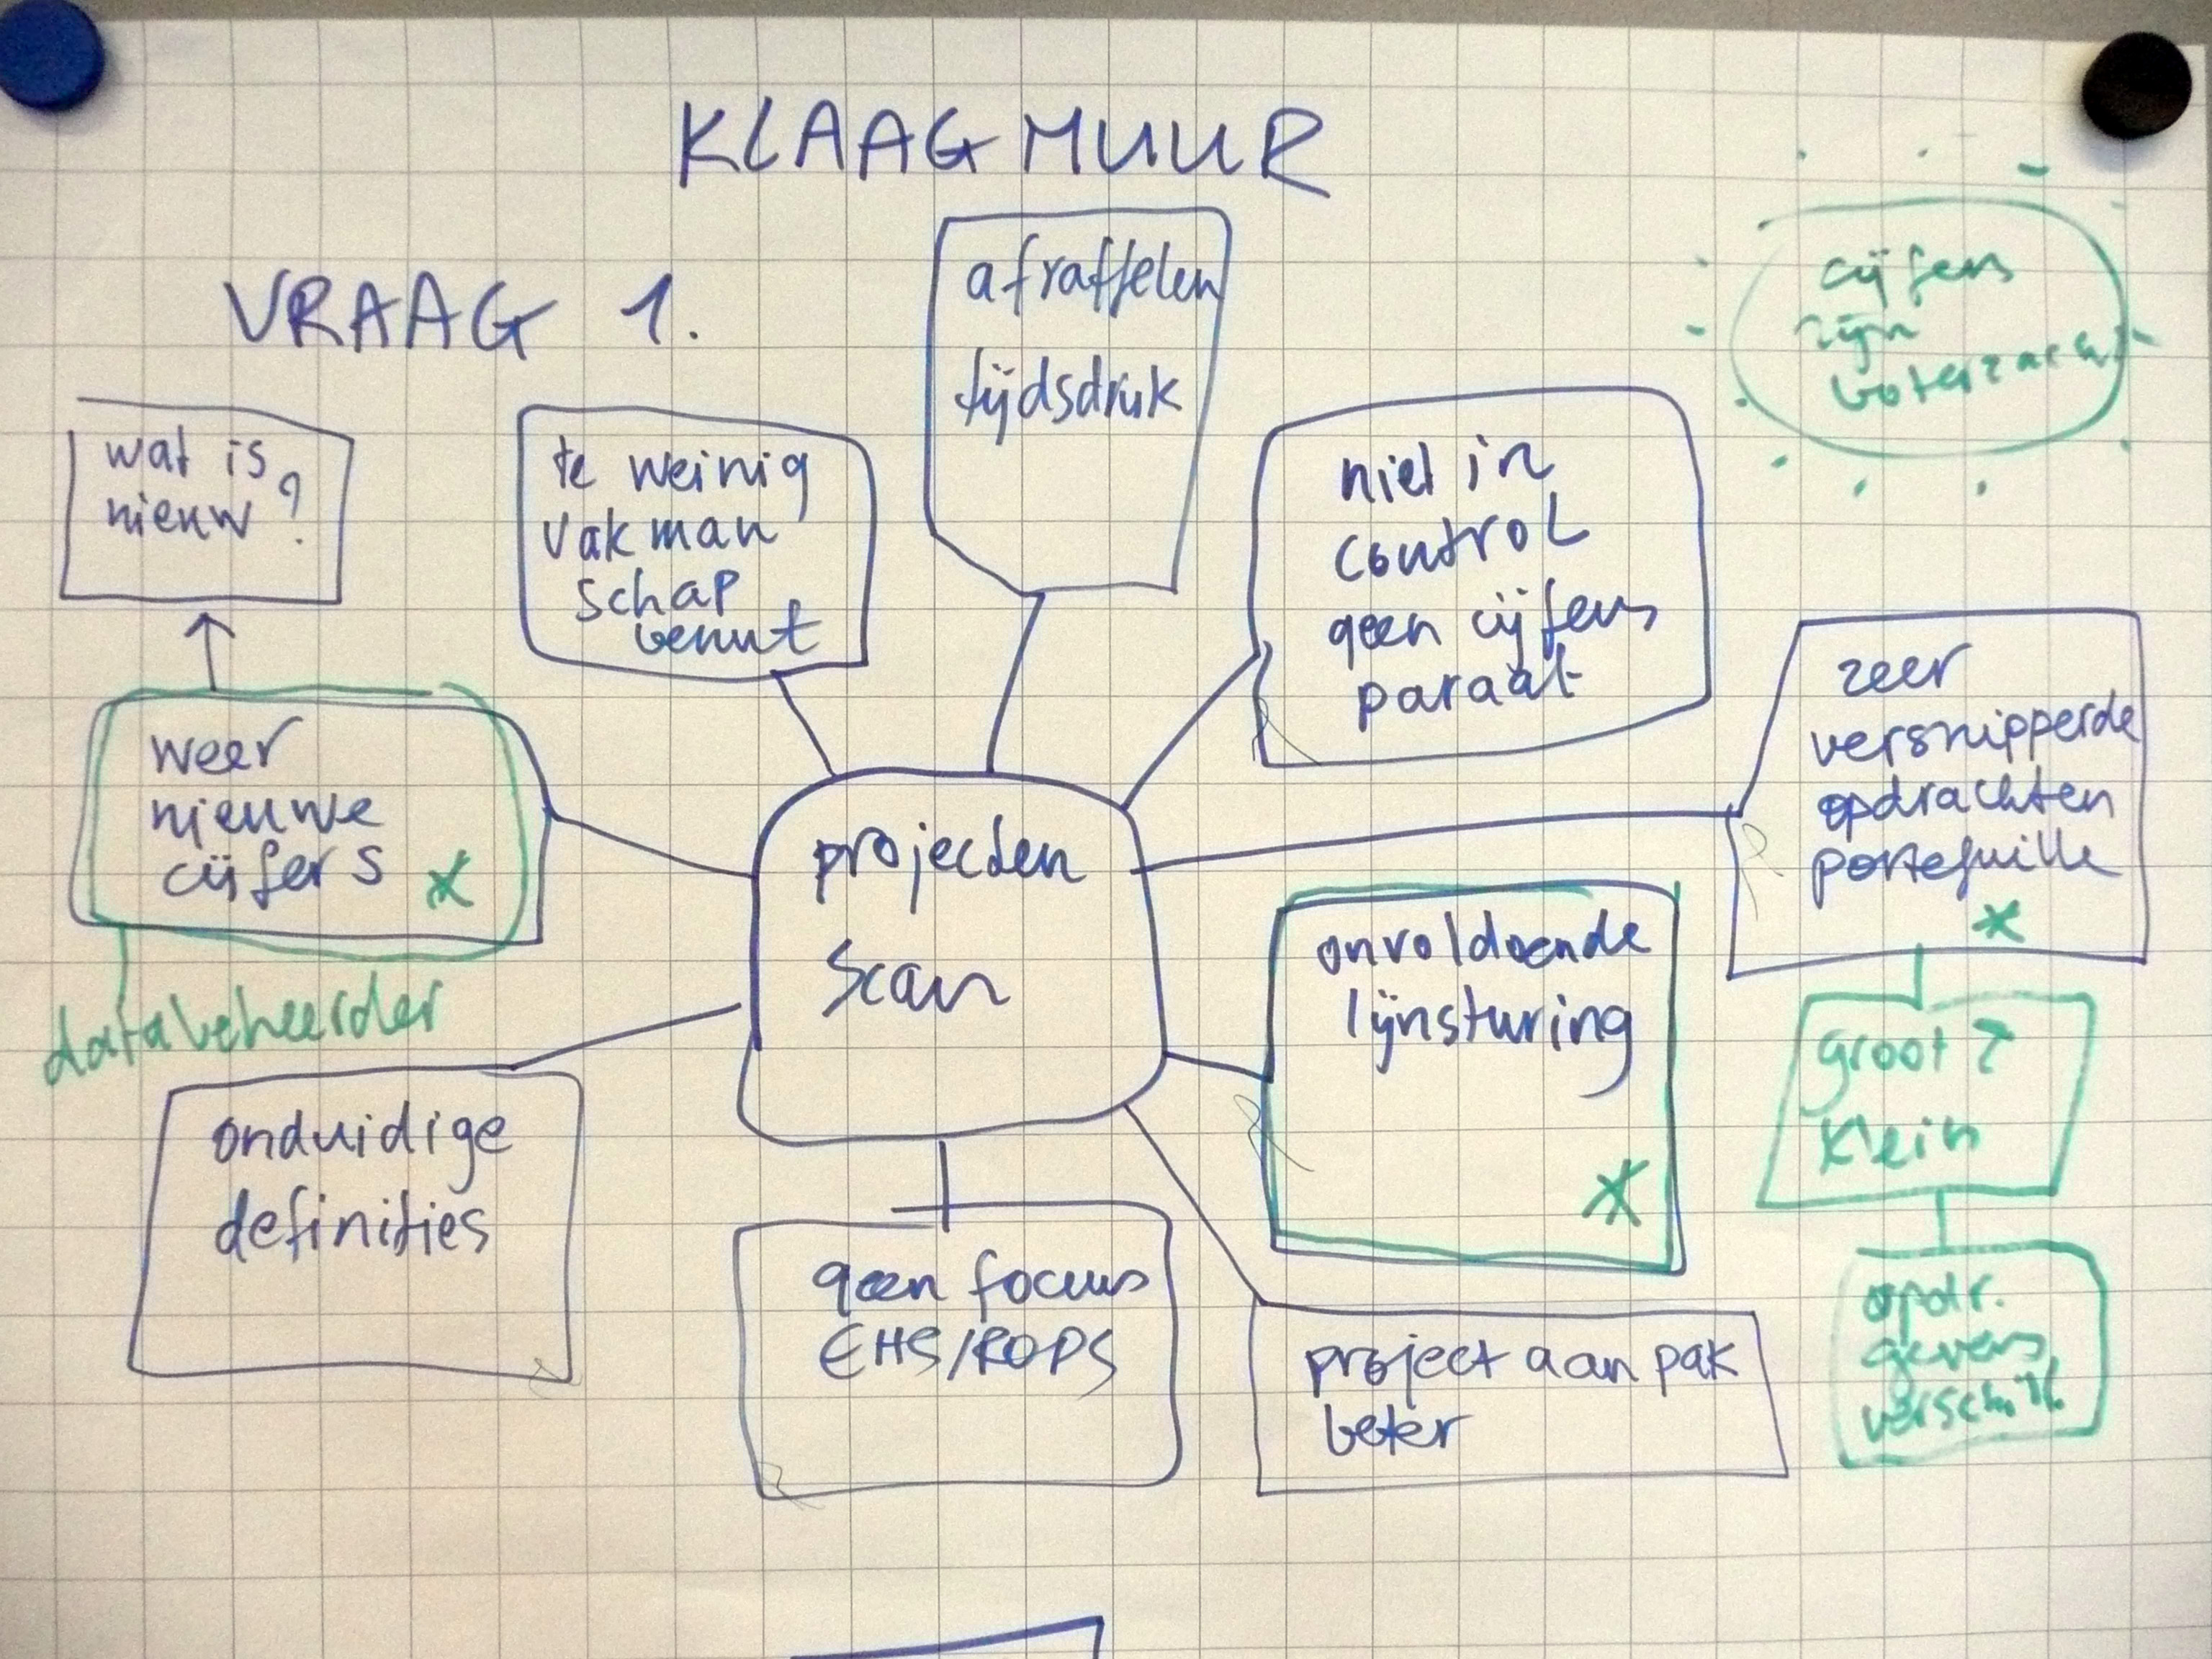 KLAAGMUUR
VRAAG 1.
afraffelen
tijdsdruk
cijfers
zijn
boterzacht
wat is
nieuw?
te weinig
vakman
schap
benut
niet in
control
geen cijfers
paraat
zeer
versnipperde
opdrachten
portefuille
weer
nieuwe
cijfers
databeheerder
projecten
scan
onvoldoende
lijnsturing
groot?
klein
onduidige
definities
geen focus
EHS/ROPS
project aanpak
beter
opdr.
gevers
verschill.